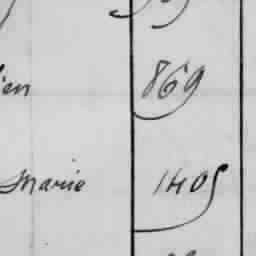 ien 869
Marie 1405